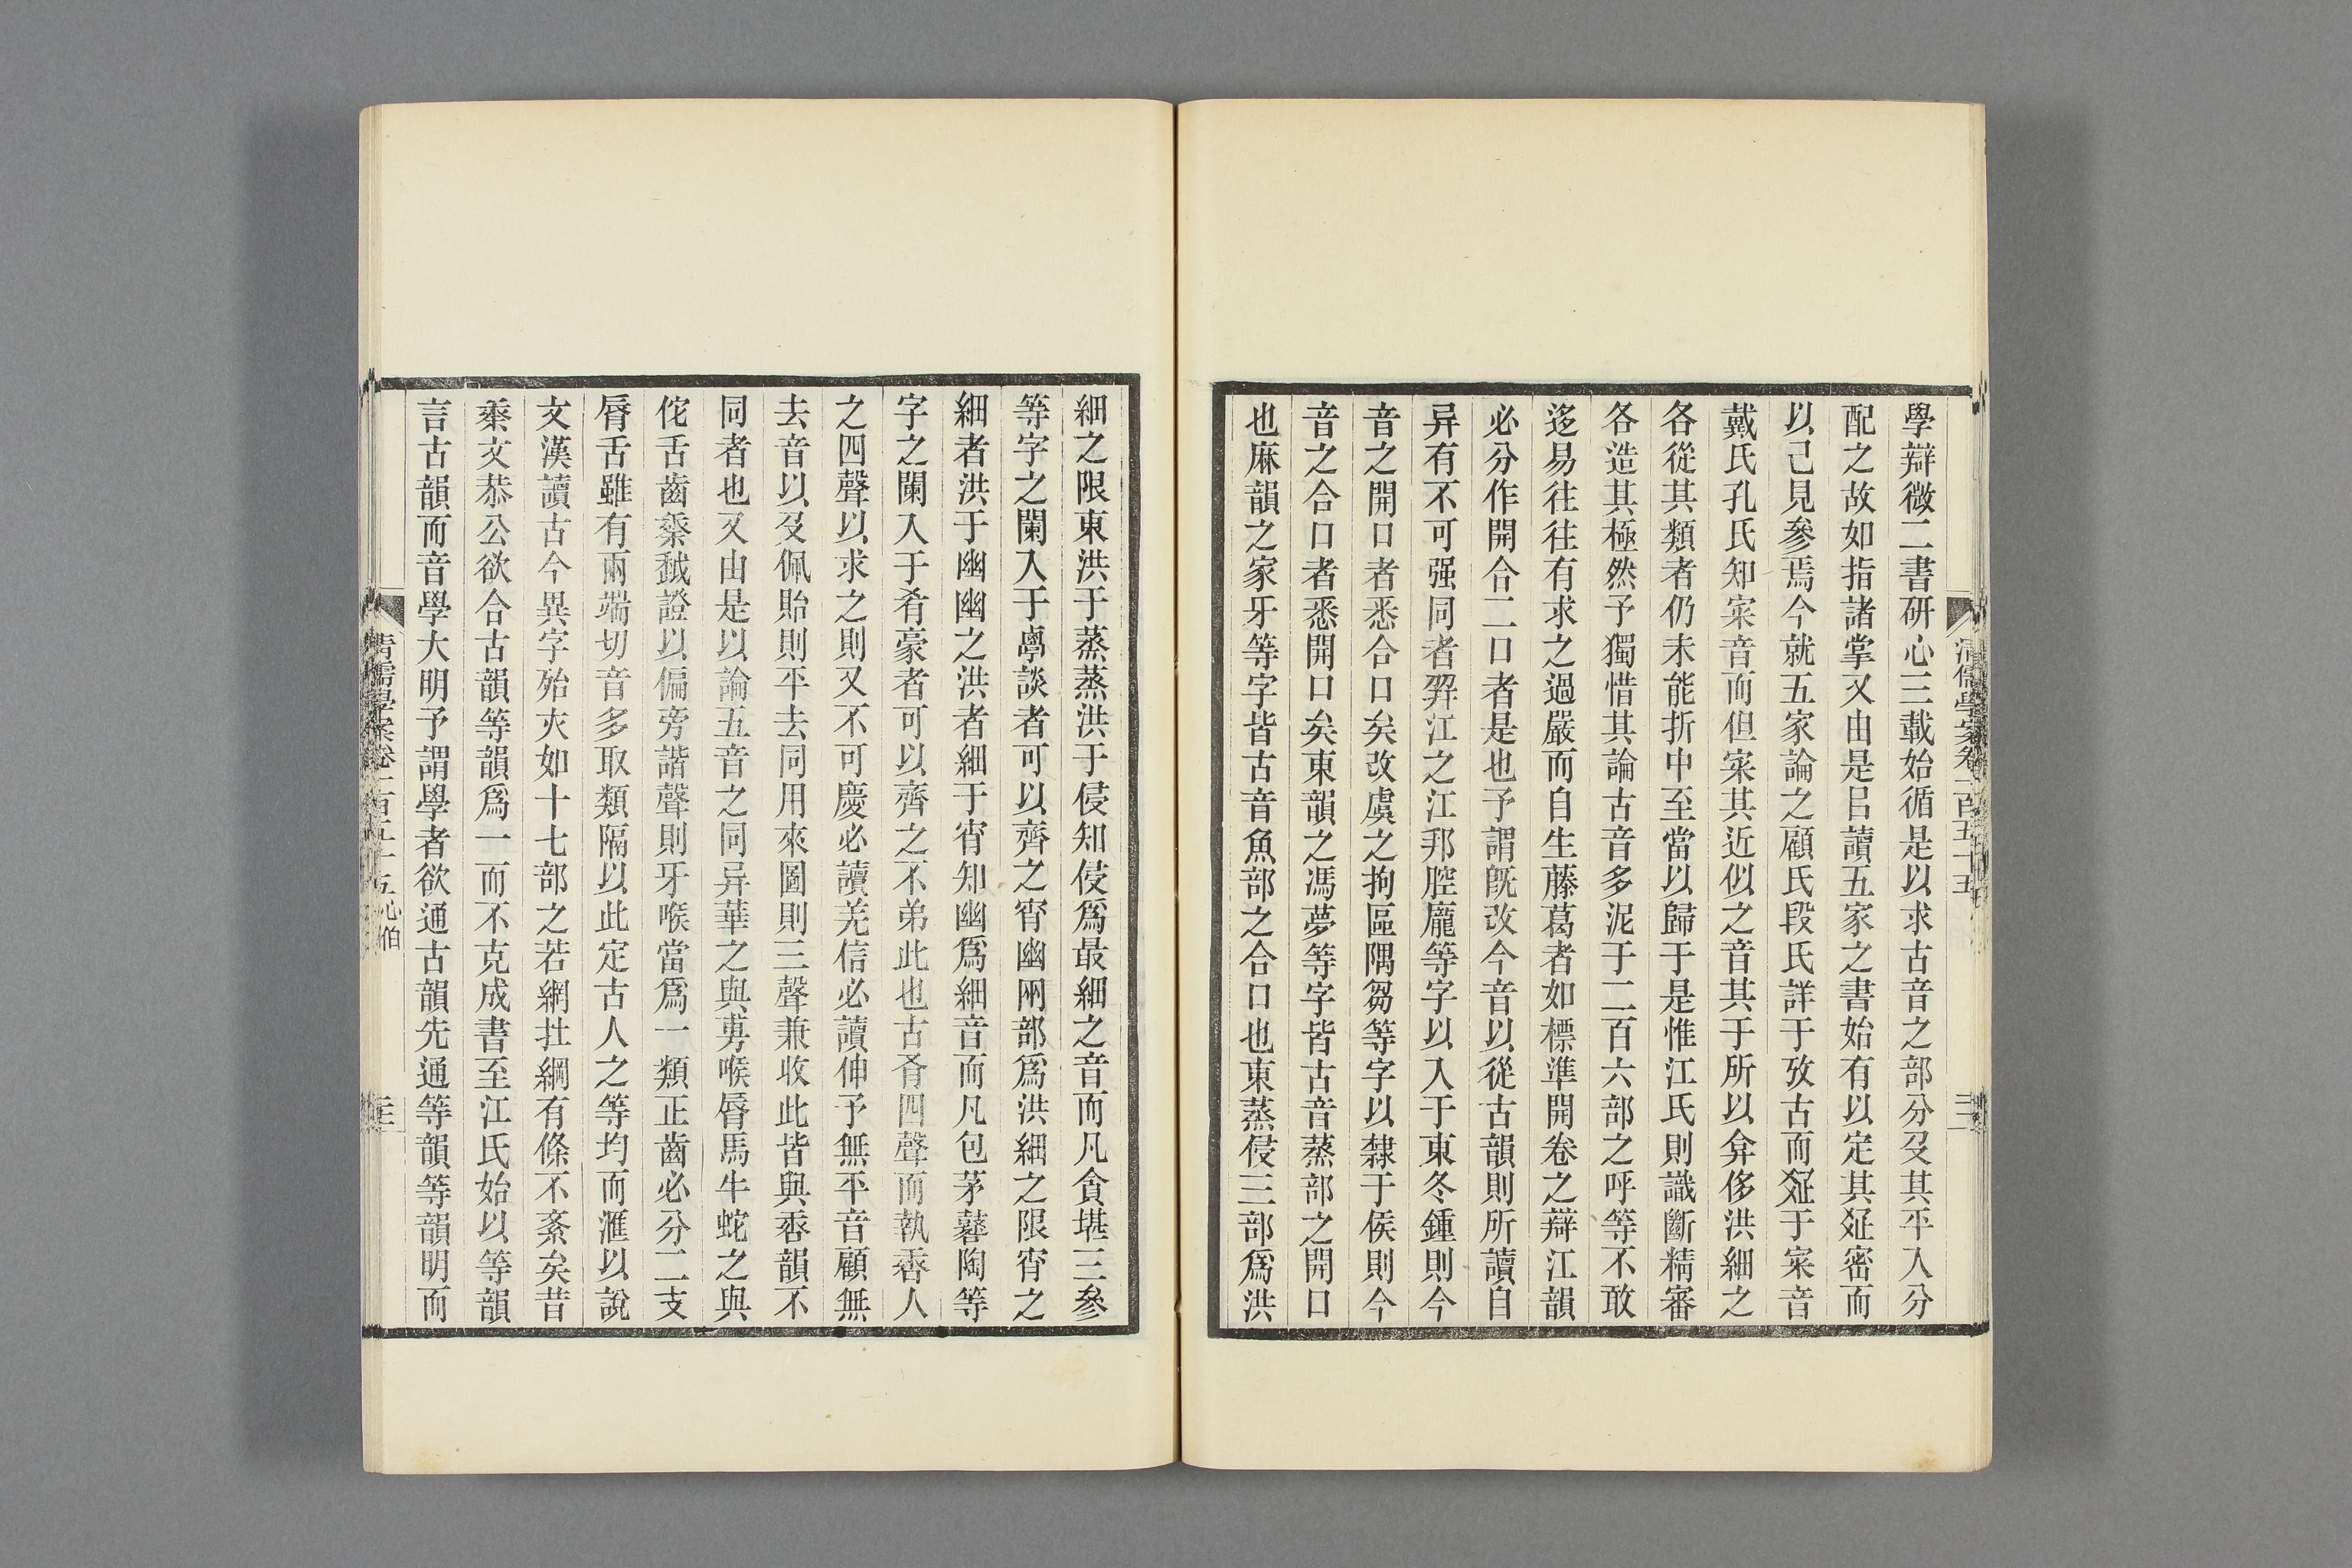 學辯微二書研心三載始循是以求古音之部分及其平入分
配之故如指諸掌又由是㠯讀五家之書始有以定其疏密而
以己見參焉今就五家論之顧氏段氏詳于攷古而疏于宷音
戴氏孔氏知宷音而但宷其近似之音其于所以弇侈洪細之
各從其類者仍未能折中至當以歸于是惟江氏則識斷精審
各造其極然予獨惜其論古音多泥于二百六部之呼等不敢
迻易往往有求之過嚴而自生藤葛者如標準開卷之辯江韻
必分作開合二口者是也予謂旣改今音以從古韻則所讀自
异有不可强同者羿江之江邦腔龐等字以入于東冬鍾則今
音之開口者悉合口矣改虞之拘區隅芻等字以隸于侯則今
音之合口者悉開口矣東韻之馮夢等字皆古音蒸部之開口
也麻韻之家牙等字皆古音魚部之合口也東蒸侵三部爲洪
細之限東洪于蒸蒸洪于侵知侵爲最細之音而凡貪堪三參
等字之闌入于覃談者可以齊之宵幽兩部爲洪細之限宵之
細者洪于幽幽之洪者細于宵知幽爲細音而凡包茅蕣陶等
字之闌入于肴豪者可以齊之不弟此也古肴四聲而執唇人
之四聲以求之則又不可慶必讀羌信必讀伸予無平音顧無
去音以及佩貽則平去同用來圖則三聲兼收此皆與唇韻不
同者也又由是以論五音之同异華之與荂喉唇馬牛蛇之與
佗舌齒黍䵝證以偏旁諧聲則牙喉當爲一類正齒必分二支
脣舌雖有兩端切音多取類隔以此定古人之等均而滙以說
文漢讀古今異字殆夾如十七部之若網在綱有條不紊矣昔
秦文恭公欲合古韻等韻爲一而不克成書至江氏始以等韻
言古韻而音學大明予謂學者欲通古韻先通等韻等韻明而
清儒學案卷一百五十五
清儒學案卷一百五十五 心伯